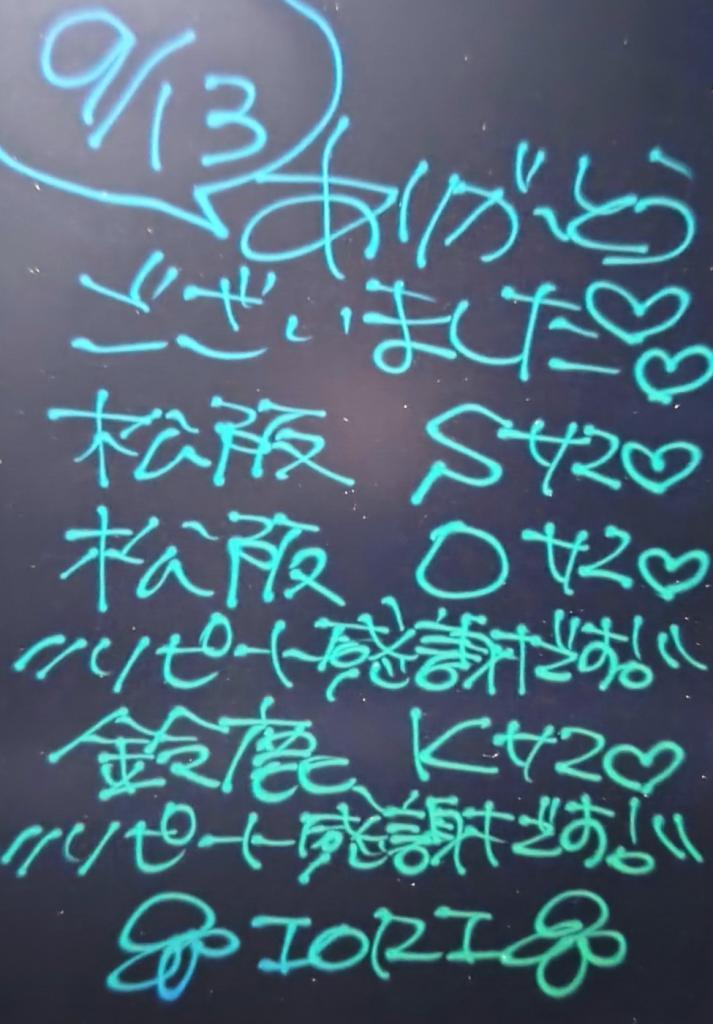 9/13
ありがとう
ございました♡♡
松阪 Sサン♡
松阪 Oサン♡
\\リピート感謝です!//
鈴鹿 Kサン♡
\\リピート感謝です!//
IORI